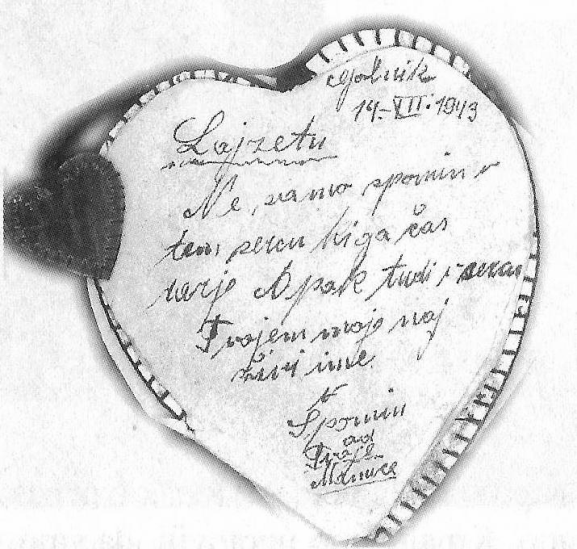 Golnik
14-VII. 1943
Lojzetu
Ne samo spomin v
tem sercu ki ga čas
tarje Apak tudi v sercu
Tvojem moje naj
živi ime.
V
Spomin
od
Tvoje